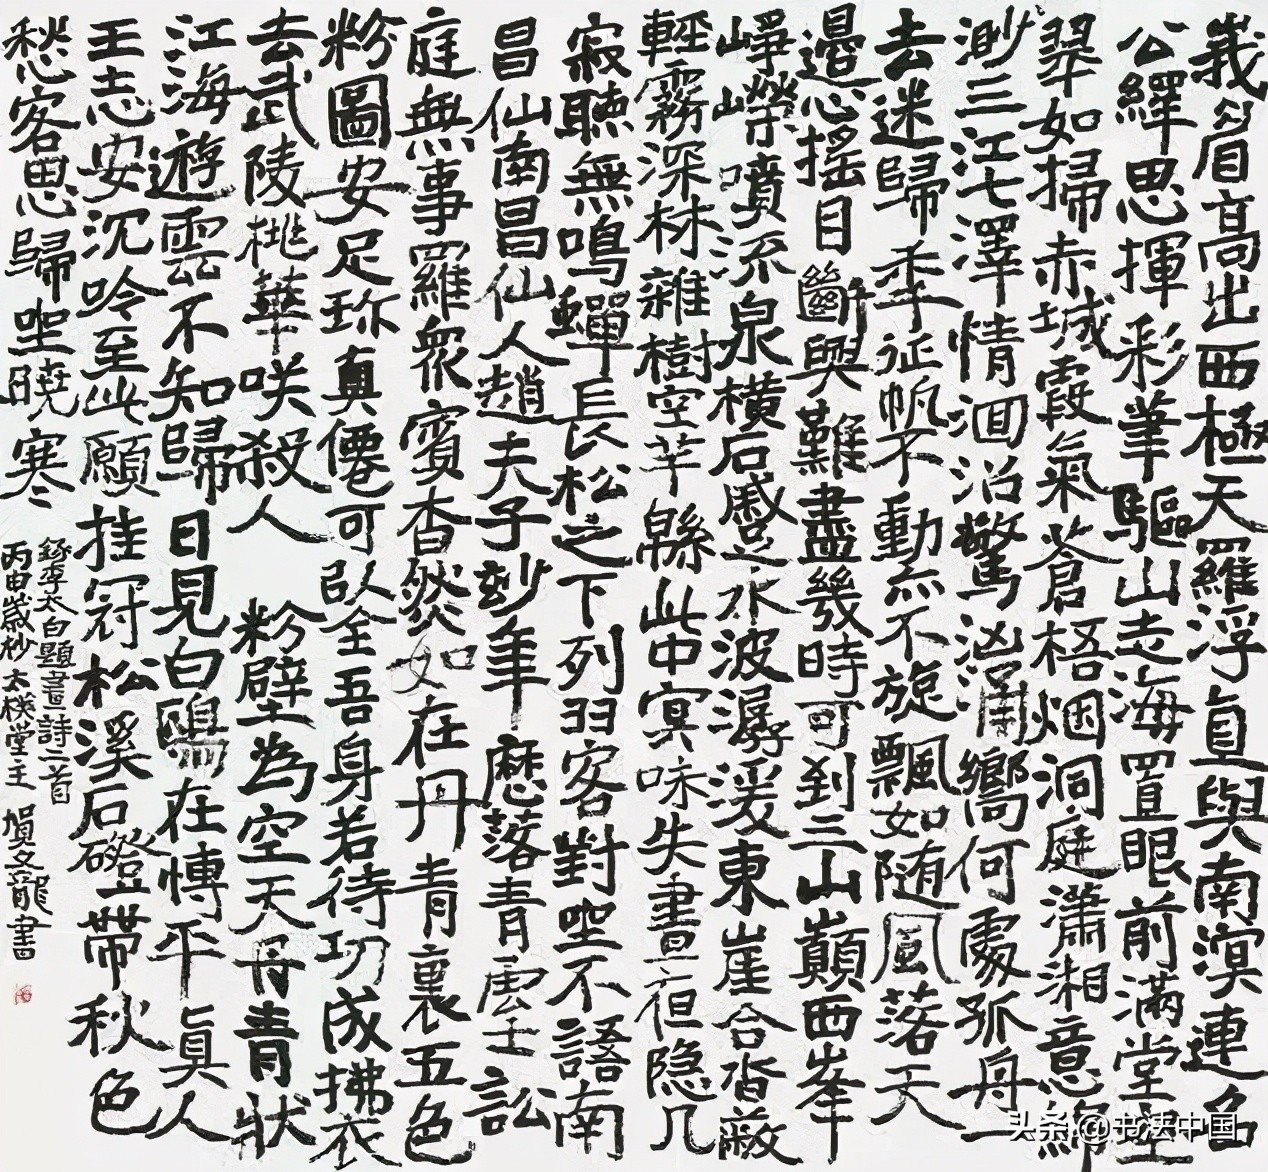 峩眉高出西極天羅浮直與南溟連名
公繹思揮彩筆驅山走海置眼前滿堂空
翠如掃赤城霞氣蒼梧烟洞庭瀟湘意緜
渺三江七澤情洄沿驚洶涌嚮何處孤舟一
去迷歸秊征帆不動亦不旋飄如随風落天
邉心揺目斷興難盡幾時可到三山巔西峯
崢嶸噴流泉橫石蹙水波潺湲東崖合沓蔽
輕霧深林雜樹空芊緜此中冥昧失晝夜隐几
寂聽無鳴蟬長松之下列羽客對坐不語南
昌仙南昌仙人趙夫子玅年歷落青雲士訟
庭無事羅衆賓杳然如在丹青裏五色
粉圖安足珎真僊可以全吾身若待功成拂衣
去武陵桃華咲殺人 粉壁為空天丹青狀
江海遊雲不知歸日見白鷗在博平真人
王志安沉吟至此願挂冠松溪石磴帶秋色
愁客思歸坐曉寒
錄李太白題畫詩二首
丙申歲杪太樸堂主 文龍書
头条@书法中国